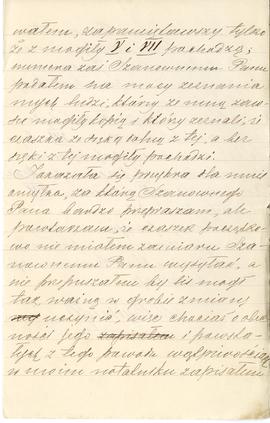 wałem, zapamiętawszy tylko
że z mogiły V i VII pochodzą;
numera zaś Szanownemu Panu
podałem na mocy zeznania
mych ludzi, którzy ze mną
mogiłę kopią i którzy zeznali, iż
czaszka ze szczęką dolną z tej, a bez
szczęki z tej mogiły pochodzi.
Pokazała się przykra dla mnie
omyłka, za którą Szanownego
Pana bardzo przepraszam, ale
powtarzam, że czaszek początko
wo nie miałem zamiaru Sza
nownemu Panu wysyłać, a
nie przypuszczałem by ktoś mógł
tak ważną w grobie zmianę
uczynić, więc chociaż obec
ność jego zapisałem i powsta
łych z tego powodu wątpliwości
w moim notatniku zapisałem